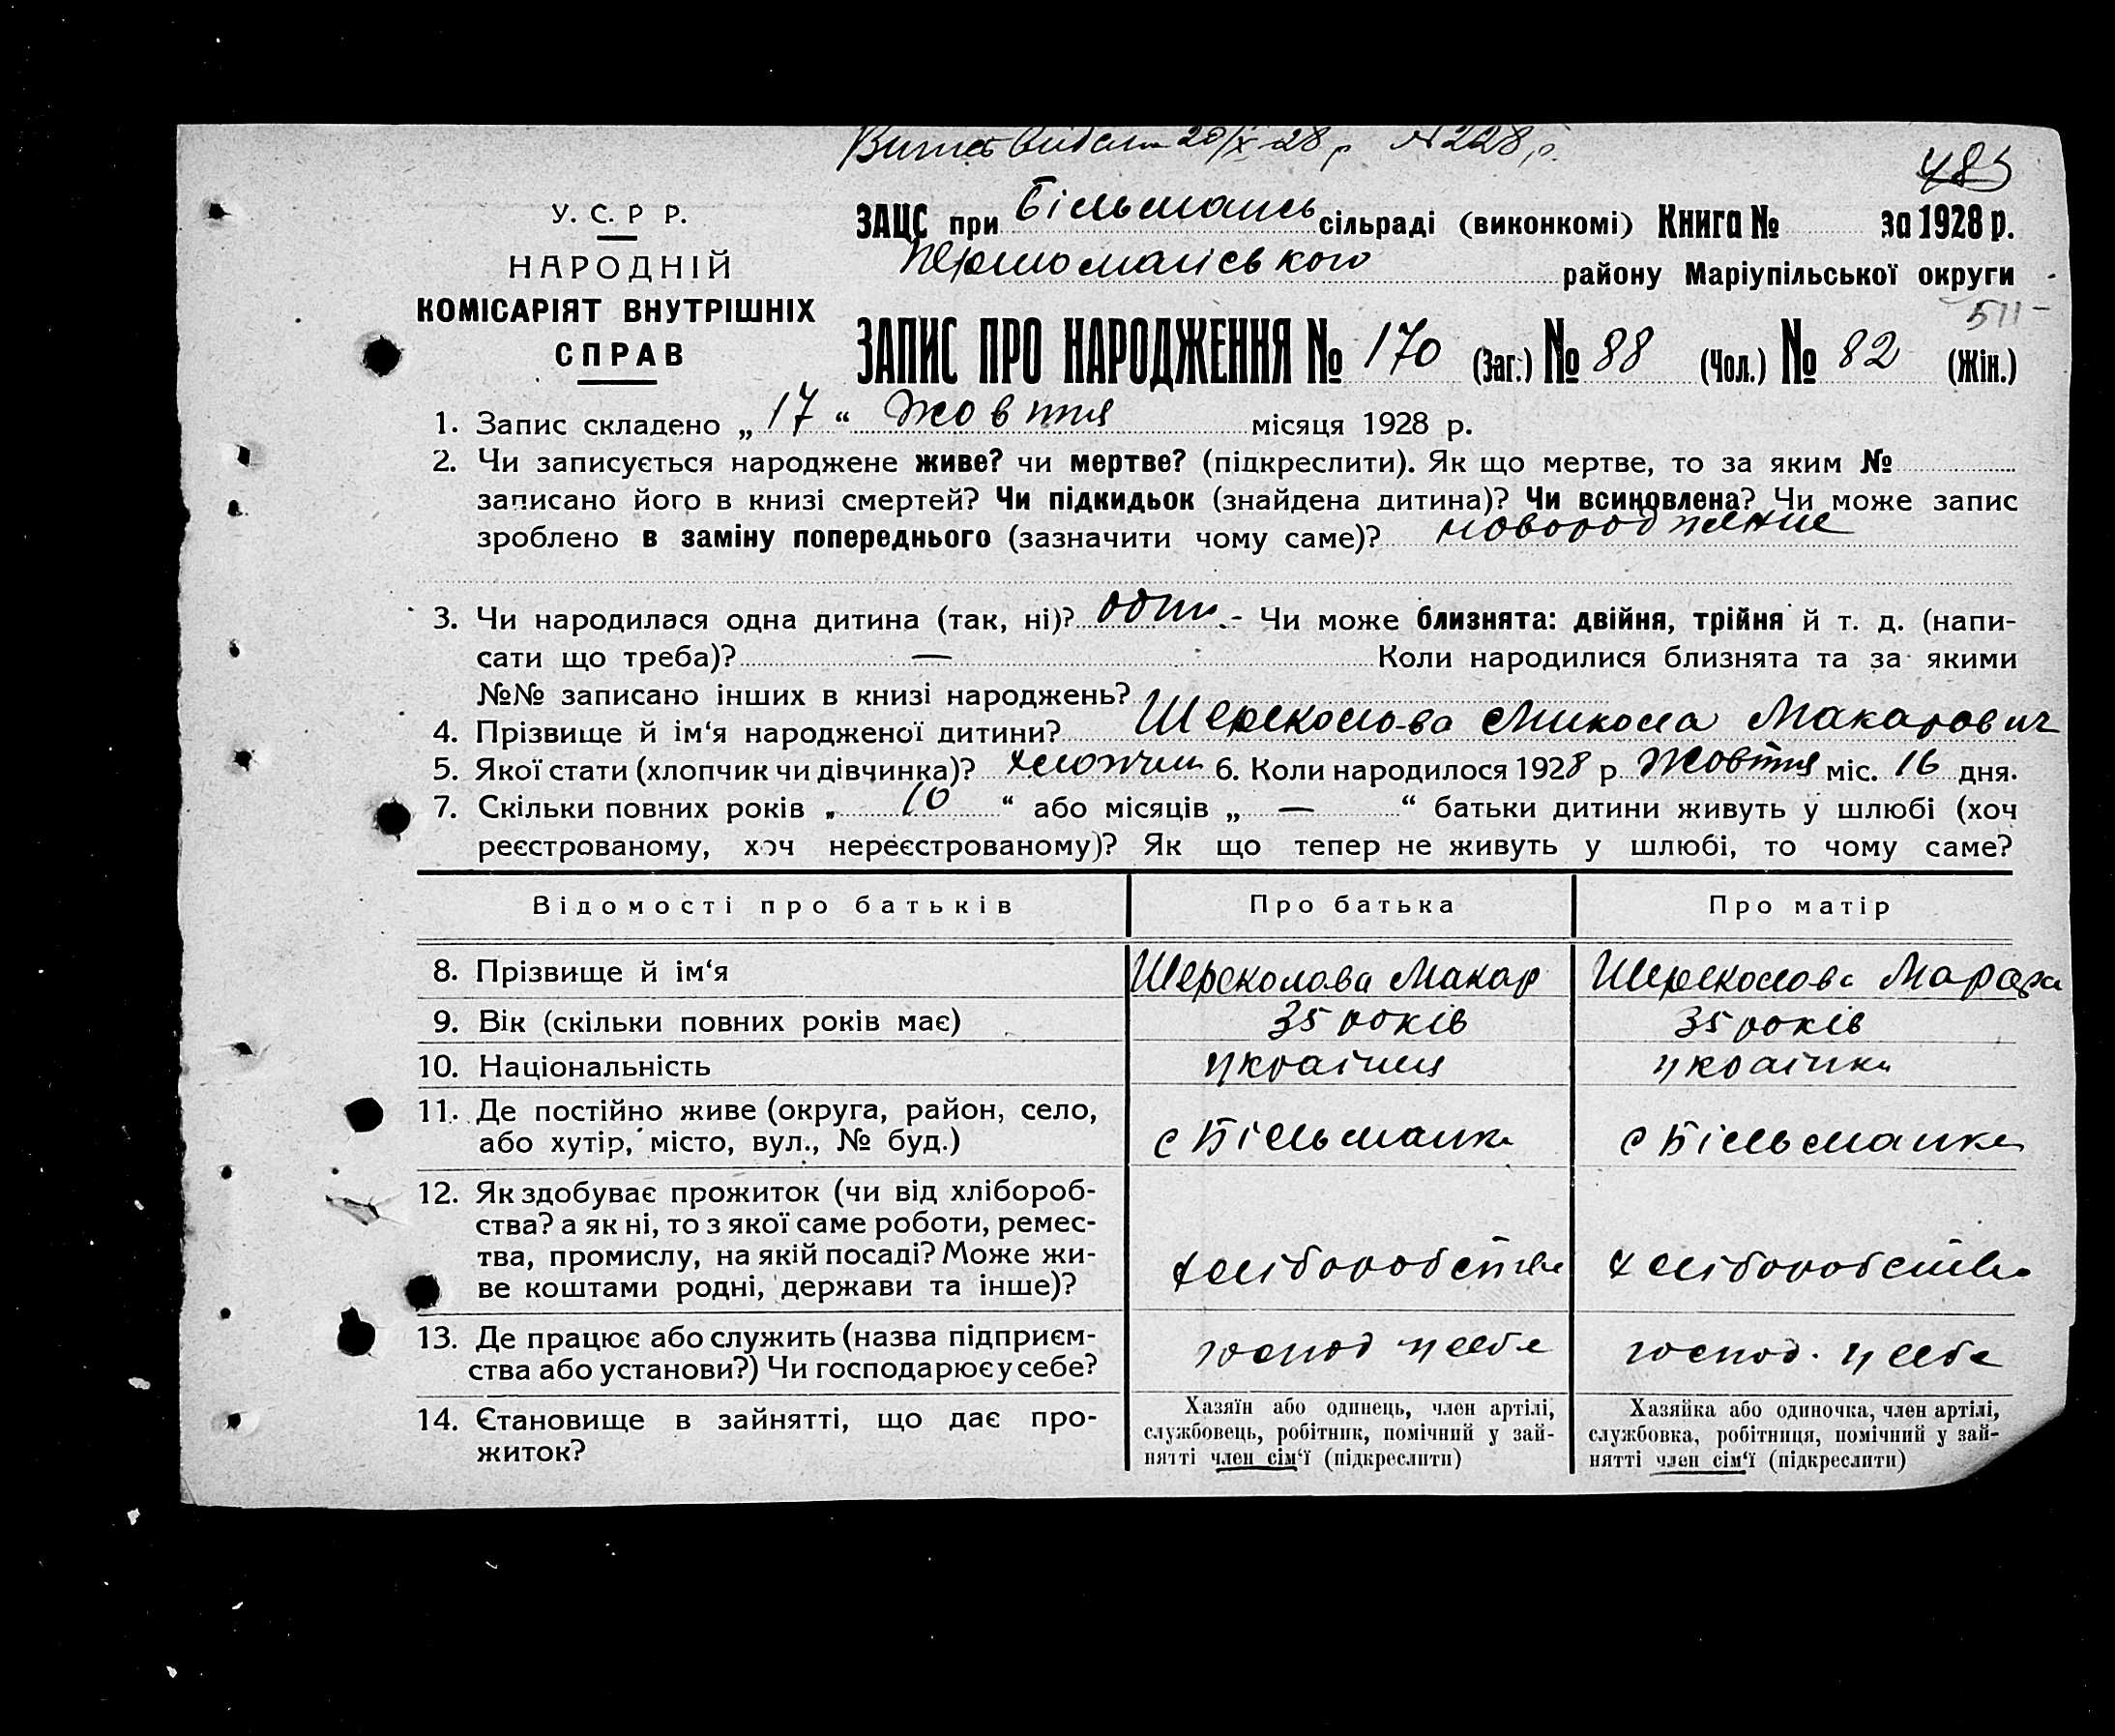 видан 20/X-28 р №228 р.
485
У. С. Р Р.
НАРОДНІЙ
КОМІСАРІЯТ ВНУТРІШНІХ
СПРАВ
ЗАЦС при Більмансь сільраді (виконкомі) Книга № за 1928 р.
Першомаїєвького району Маріупільської округи
511-
ЗАПИС ПРО НАРОДЖЕННЯ № 170 (Заг.) № 88 (Чол.) № 82 (Жін.)
1. Запис складено „ 17 “ Жовтня місяця 1928 р.
2. Чи записується народжене живе? чи мертве? (підкреслити). Як що мертве, то за яким №
записано його в книзі смертей? Чи підкидьок (знайдена дитина)? Чи всиновлена? Чи може запис
зроблено в заміну попереднього (зазначити чому саме)? новорождение
3. Чи народилася одна дитина (так, ні)? один.- Чи може близнята: двійня, трійня й т. д. (напи-
сати що треба)? — Коли народилися близнята та за якими
№№ записано інших в книзі народжень?
4. Прізвище й ім‘я народженої дитини? Шереколова Микола Макарович
5. Якої стати (хлопчик чи дівчинка)? хлопчик 6. Коли народилося 1928 р Жовтня міс. 16 дня.
7. Скільки повних років „ 10 “ або місяців „ — “ батьки дитини живуть у шлюбі (хоч
реєстрованому, хоч нереєстрованому)? Як що тепер не живуть у шлюбі, то чому саме?
Відомості про батьків Про батька Про матір
8. Прізвище й ім‘я Шереколова Макар Шереколова
9. Вік (скільки повних років має) 35 років 35 років
10. Національність україниц українка
11. Де постійно живе (округа, район, село,
або хутір, місто, вул., № буд.) с Більманка с Більманка
12. Як здобуває прожиток (чи від хлібороб-
ства? а як ні, то з якої саме роботи, ремес-
тва, промислу, на якій посаді? Може жи-
ве коштами родні, держави та інше)? хліборобства хліборобства
13. Де працює або служить (назва підприєм-
ства або установи?) Чи господарює у себе? господ у себе господ. у себе
14. Єтановище в зайнятті, що дає про-
житок?
Хазяїн або одинець, член артілі,
службовець, робітник, помічний у зай-
нятті член сім‘ї (підкреслити)
Хазяйка або одиночка, член артілі,
службовка, робітниця, помічний у зай-
нятті член сім‘ї (підкреслити)